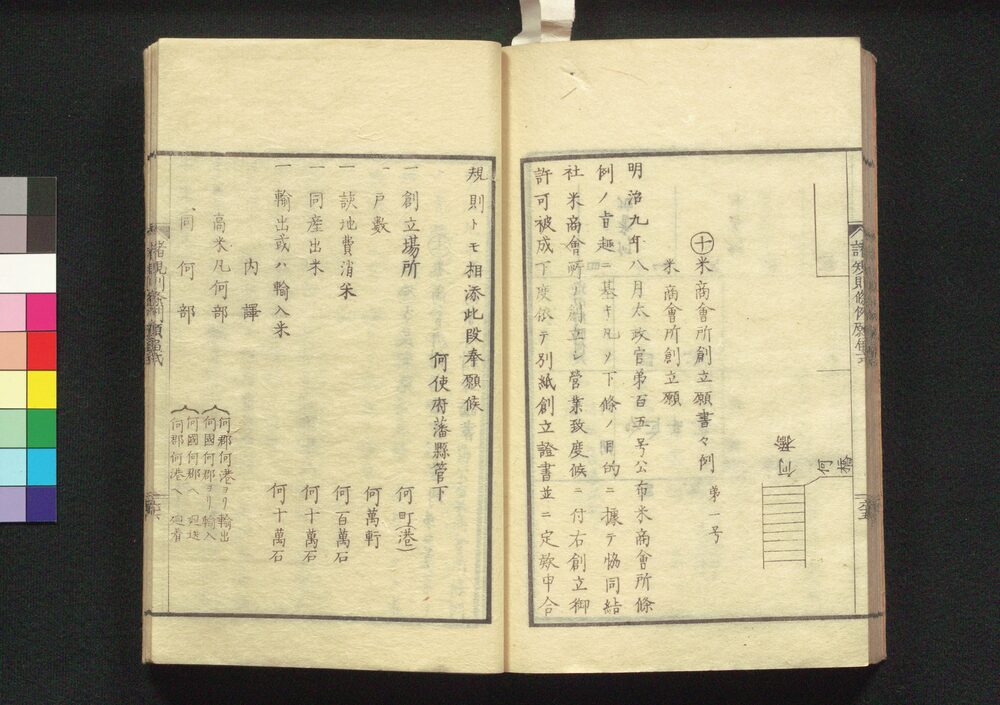 諸規則條例願届式
何橋
何橋
六十五
㊉米商會所創立願書々例 第一号
米商會所創立願
明治九年八月太政官第百五号公布米商會所條
例ノ旨趣ニ基キ凡ソ下條ノ目的ニ據テ協同結
社米商會所ヲ創立シ營業致度候ニ付右創立御
許可被成下度依テ別紙創立證書並ニ定款申合
規則トモ相添此段奉願候
何使府藩縣管下
一創立場所 何町(港)
一戸數 何萬軒
一該地費消米 何百萬石
一同産出米 何十萬石
一輸出或ハ輸入米 何十萬石
内譯
高米凡何部 何郡何港ヨリ輸出 何國何郡ヨリ輸入
同何部 何國何郡ヘ廻送 何郡何港ヘ廻着
諸規則條例願届式
六十六